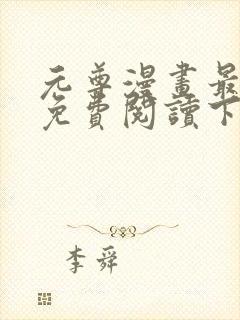 元尊漫畫最
免費閱讀下
李舜